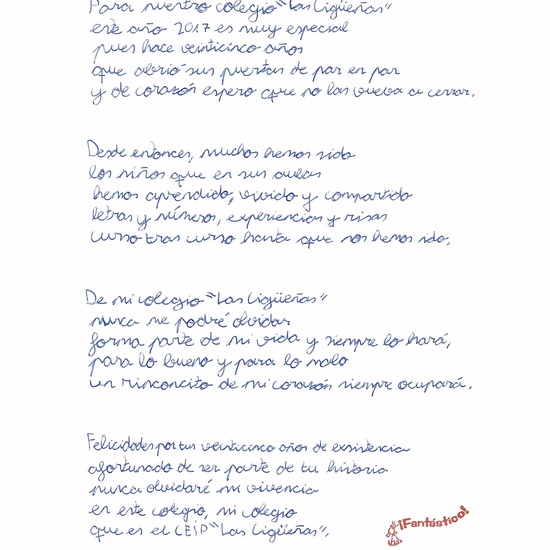 Para nuestro colegio "Las Cigüeñas"
este año 2017 es muy especial
pues hace veinticinco años
que abrió sus puertas de par en par
y de corazón espero que no las vuelva a cerrar.
Desde entonces, muchos hemos sido
los niños que en sus aulas
hemos aprendido, vivido y compartido
letras y números, experiencias y risas
curso tras curso hasta que nos hemos ido.
De mi colegio "Las Cigüeñas"
nunca me podré olvidar
forma parte de mi vida y siempre lo hará,
para lo bueno y para lo malo
un rinconcito de mi corazón siempre ocupará.
Felicidades por tus veinticinco años de existencia
afortunado de ser parte de tu historia
nunca olvidaré mi vivencia
en este colegio, mi colegio
que es el CEIP "Las Cigüeñas".
¡Fantástico!